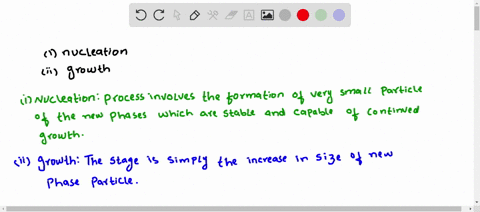 (i) nucleation
(ii) growth
(i) Nucleation: process involves the formation of very small Particle
of the new Phases which are stable and capable of continued
growth.
(ii) growth: The stage is simply the increase in size of new
Phase Particle.